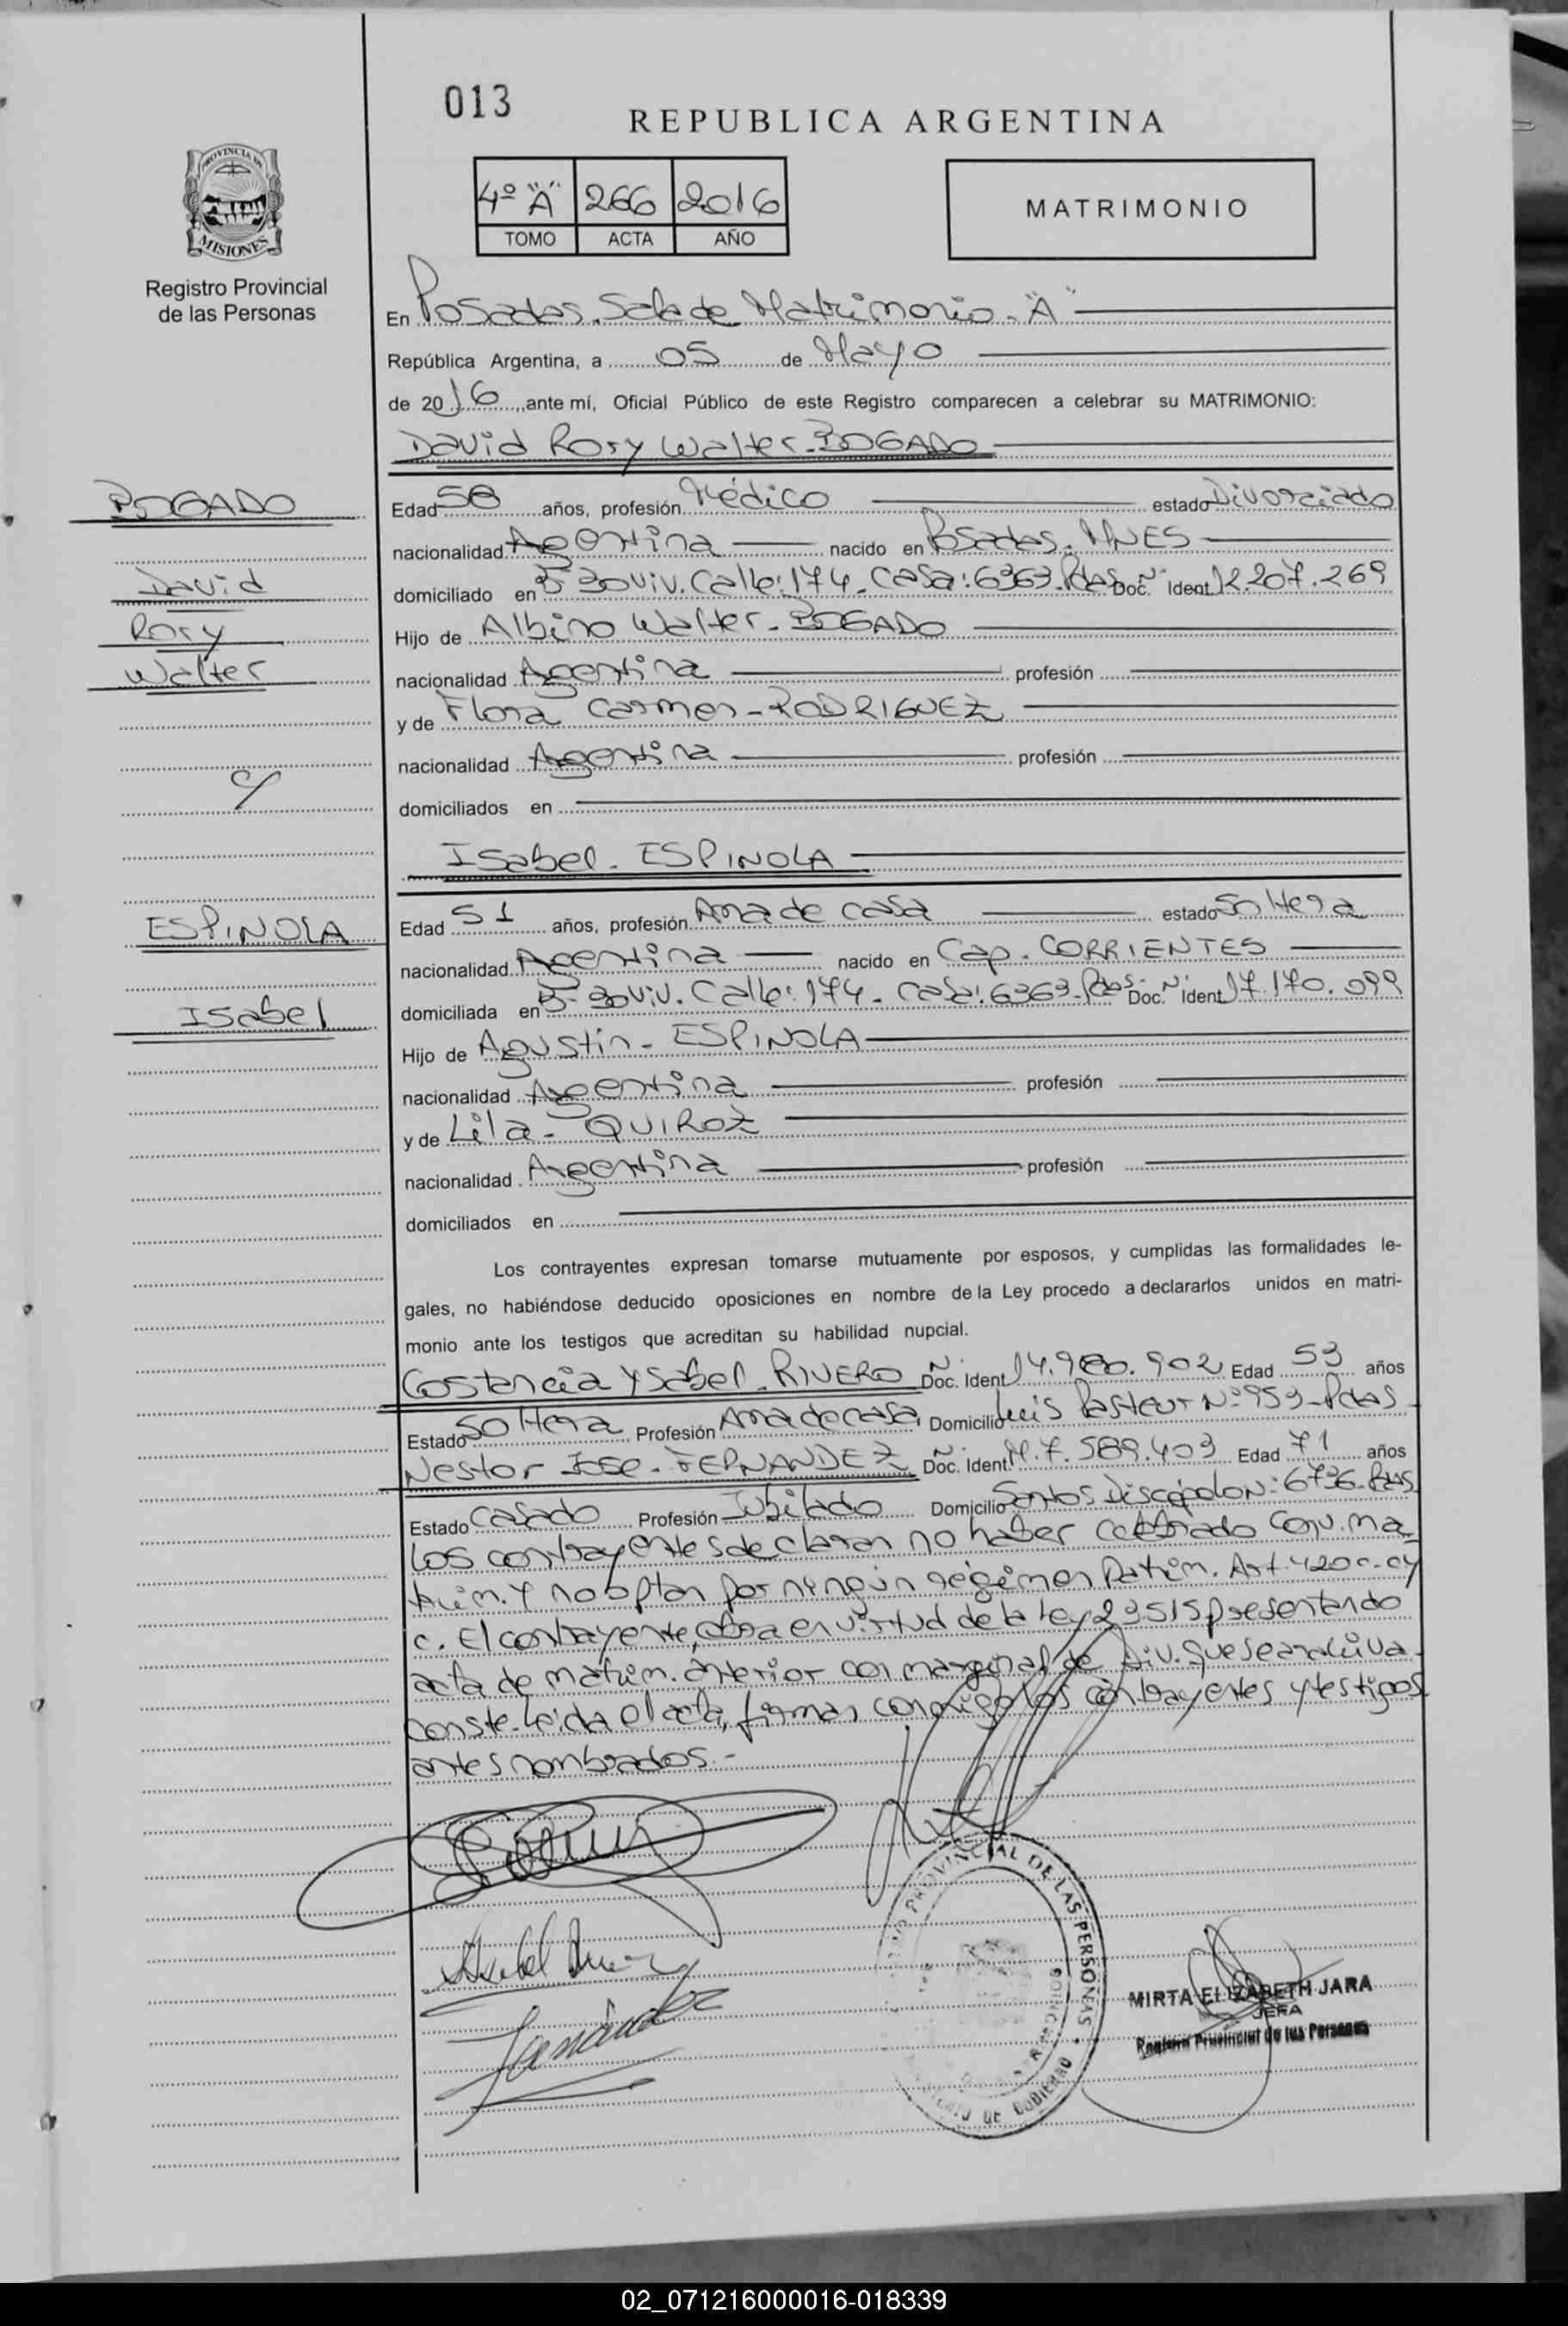 013
REPUBLICA ARGENTINA
4º "A" 266 2016
TOMO ACTA AÑO
MATRIMONIO
PROVINCIA DE
MISIONES
Registro Provincial
de las Personas
En Posadas. Sala de Matrimonio. "A"
República Argentina, a 05 de Mayo
de 2016, ante mí, Oficial Público de este Registro comparecen a celebrar su MATRIMONIO:
David Rory Walter - BOGADO
BOGADO
David
Rory
Walter
c/
ESPINOLA
Isabel
Edad 58 años, profesión Médico estado Divorciado
nacionalidad Argentina nacido en Posadas. MNES
domiciliado en Bº 30 viv. Calle: 174. Casa: 6363. Pdas Doc. Nº Ident. 12.207.269
Hijo de Albino Walter - BOGADO
nacionalidad Argentina profesión
y de Flora Carmen - RODRIGUEZ
nacionalidad Argentina profesión
domiciliados en
Isabel - ESPINOLA
Edad 51 años, profesión Ama de casa estado Soltera
nacionalidad Argentina nacido en Cap. CORRIENTES
domiciliada en Bº 30 viv. Calle: 174. Casa: 6363. Pdas Doc. Nº Ident. 17.170.099
Hijo de Agustin - ESPINOLA
nacionalidad Argentina profesión
y de Lila - QUIROZ
nacionalidad Argentina profesión
domiciliados en
Los contrayentes expresan tomarse mutuamente por esposos, y cumplidas las formalidades le-
gales, no habiéndose deducido oposiciones en nombre de la Ley procedo a declararlos unidos en matri-
monio ante los testigos que acreditan su habilidad nupcial.
Costancia Ysabel - RIVERO Doc. Nº Ident. 14.980.902 Edad 53 años
Estado Soltera Profesión Ama de casa Domicilio Luis Pasteur Nº 959 - Pdas
Nestor Jose - FERNANDEZ Doc. Nº Ident. M.7.589.403 Edad 71 años
Estado Casado Profesión Jubilado Domicilio Santos Discépolo Nº 6736 - Pdas
Los contrayentes declaran no haber celebrado conv. ma-
trim. y no optan por ningún régimen Patrim. Art. 420 c. cy
c. El contrayente, obra en virtud de la ley 23515 presentando
acta de matrim. anterior con marginal de Div. que se archiva.
conste. Leida el acta, firman conmigo los contrayentes y testigos
antes nombrados.-
Fernández
PROVINCIAL DE LAS PERSONAS
DE GOBIERNO
MIRTA ELIZABETH JARA
JEFA
Registro Provincial de las Personas
02_071216000016-018339